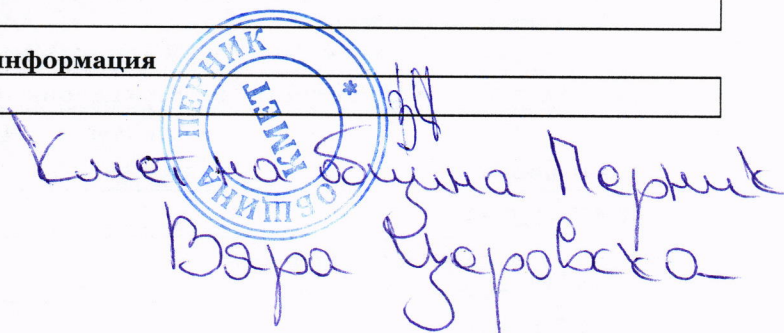 информация
ОБЩИНА ПЕРНИК
КМЕТ
*
за
Кмет на община Перник
Вяра Церовска